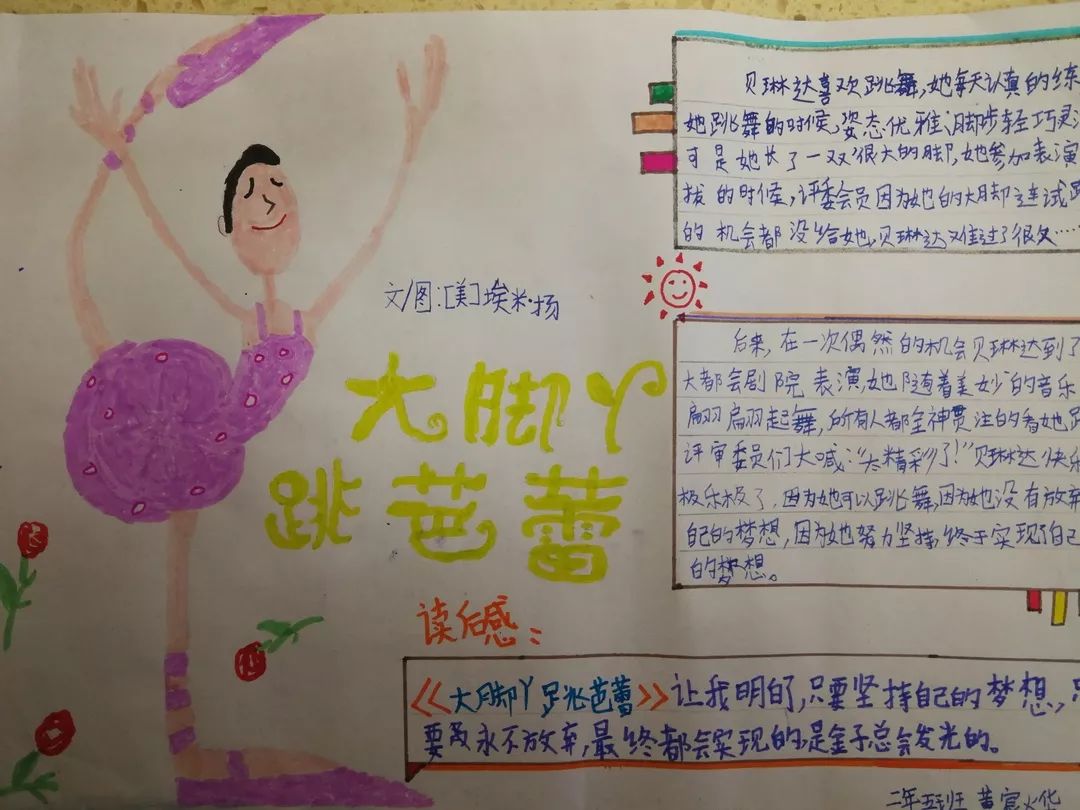 贝琳达喜欢跳舞,她每天认真的练
她跳舞的时候,姿态优雅,脚步轻巧灵
可是她长了一双很大的脚,她参加表演
拔的时候,评委会员因为她的大脚连试跳
的机会都没给她,贝琳达难过了很久……
文/图:[美]埃米·扬
大脚丫
跳芭蕾
后来,在一次偶然的机会贝琳达到了
大都会剧院表演,她随着美妙的音乐
扁羽扁羽起舞,所有人都全神贯注的看她跳
评审委员们大喊:“太精彩了!”贝琳达快乐
极乐极了,因为她可以跳舞,因为她没有放弃
自己的梦想,因为她努力坚持,终于实现了自己
的梦想。
读后感:
《大脚丫跳芭蕾》让我明白了,只要坚持自己的梦想,只
要永不放弃,最终都会实现的,是金子总会发光的。
二年五班 黄